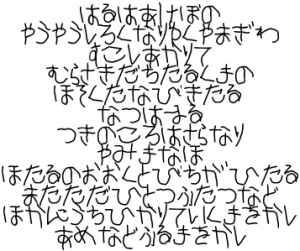 はるはあけぼの
やうやうしろくなりゆくやまぎわ
すこしあかりて
むらさきだちたるくもの
ほそくたなびきたる
なつはよる
つきのころはさらなり
やみもなほ
ほたるのおおくとびちがひたる
またただひとつふたつなど
ほかにうちひかりていくもをかし
あめなどふるもをかし